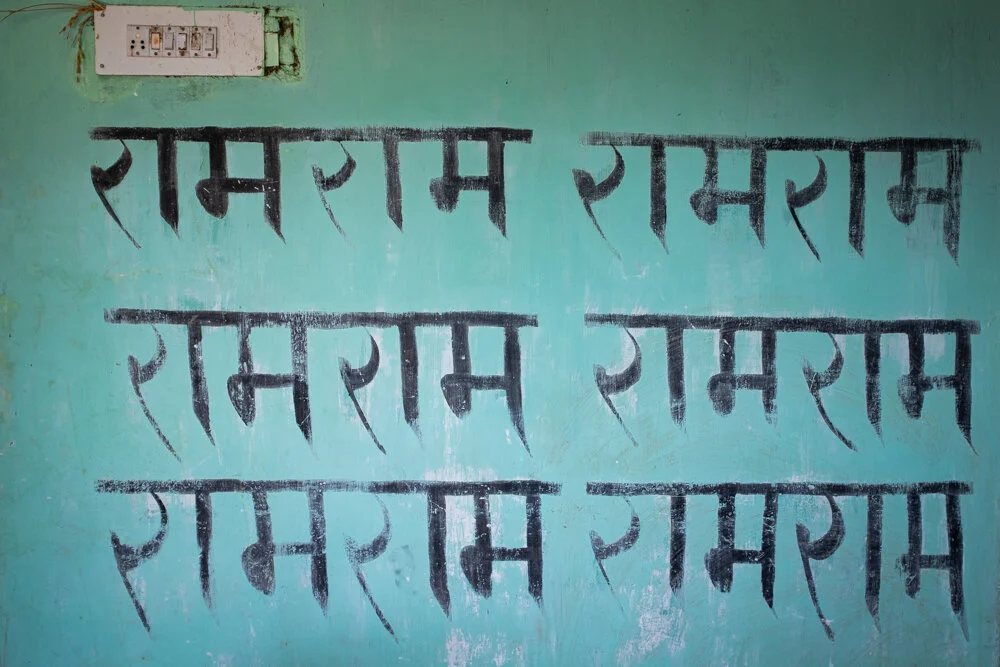 रामराम रामराम
रामराम रामराम
रामराम रामराम